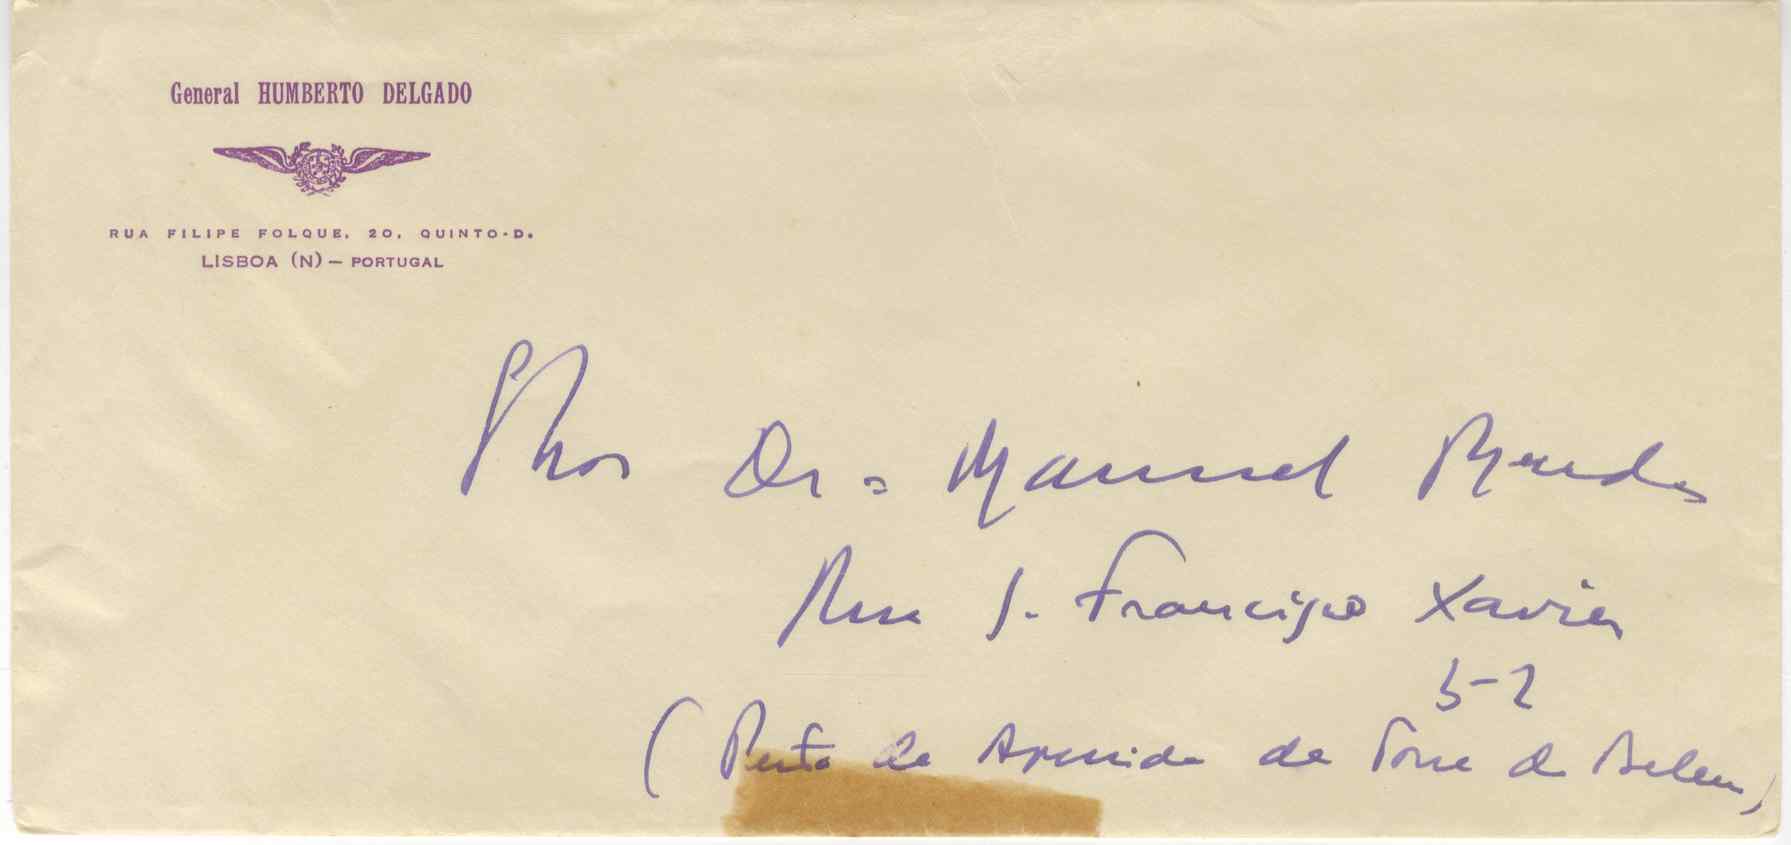 General HUMBERTO DELGADO
RUA FILIPE FOLQUE, 20, QUINTO-D.
LISBOA (N) — PORTUGAL
Dr. Manuel Mendes
Rua S. Francisco Xavier
5-2
(Perto da Avenida da Torre de Belem)